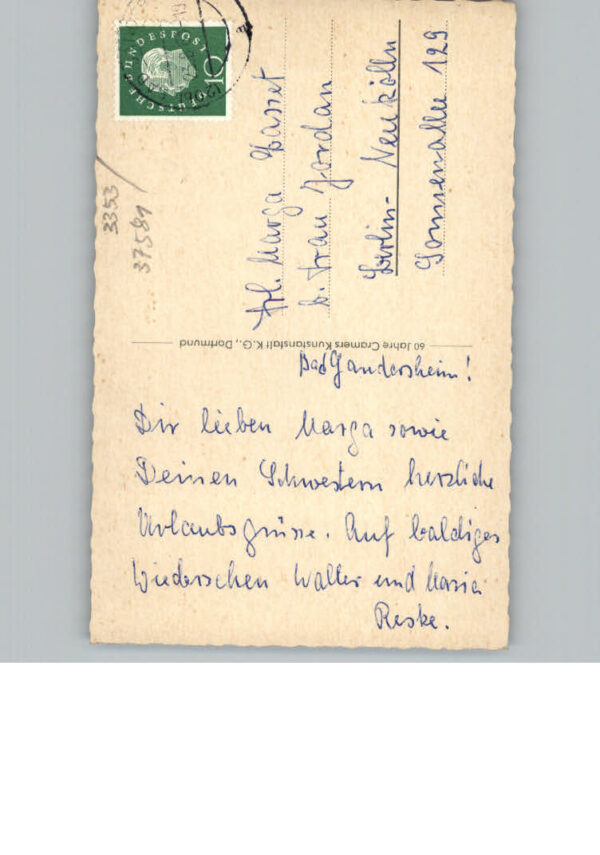 DEUTSCHE BUNDESPOST
10
3353
37581
Frl. Marga
b. Frau Jordan
Berlin-Neukölln
Sonnenallee 129
60 Jahre Cramers Kunstanstalt K.G., Dortmund
Bad Gandersheim!
Dir lieben Marga sowie
Deinen Schwestern herzliche
Urlaubsgrüsse. Auf baldiges
Wiedersehen Walter und Maria
Reske.